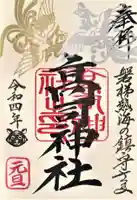 奉拝
磐梯熱海の鎮守さま
高司神社
令和四年
元旦